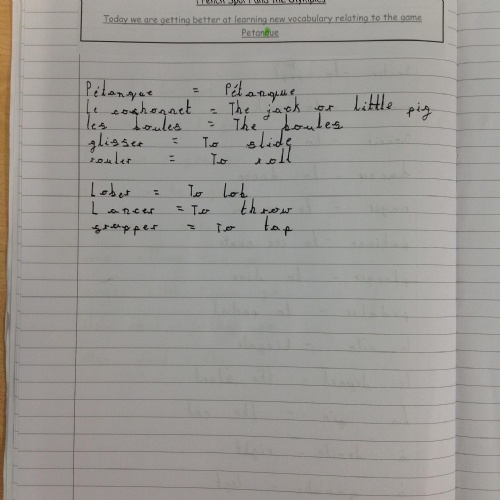 French Sport and the Olympics
Today we are getting better at learning new vocabulary relating to the game
Petanque
Pétanque = Pétanque
le coshonnet = The jack or little pig
les boules = The boules
glisser = To slide
rouler = To roll
Lober = To lob
Lancer = To throw
grapper = To tap